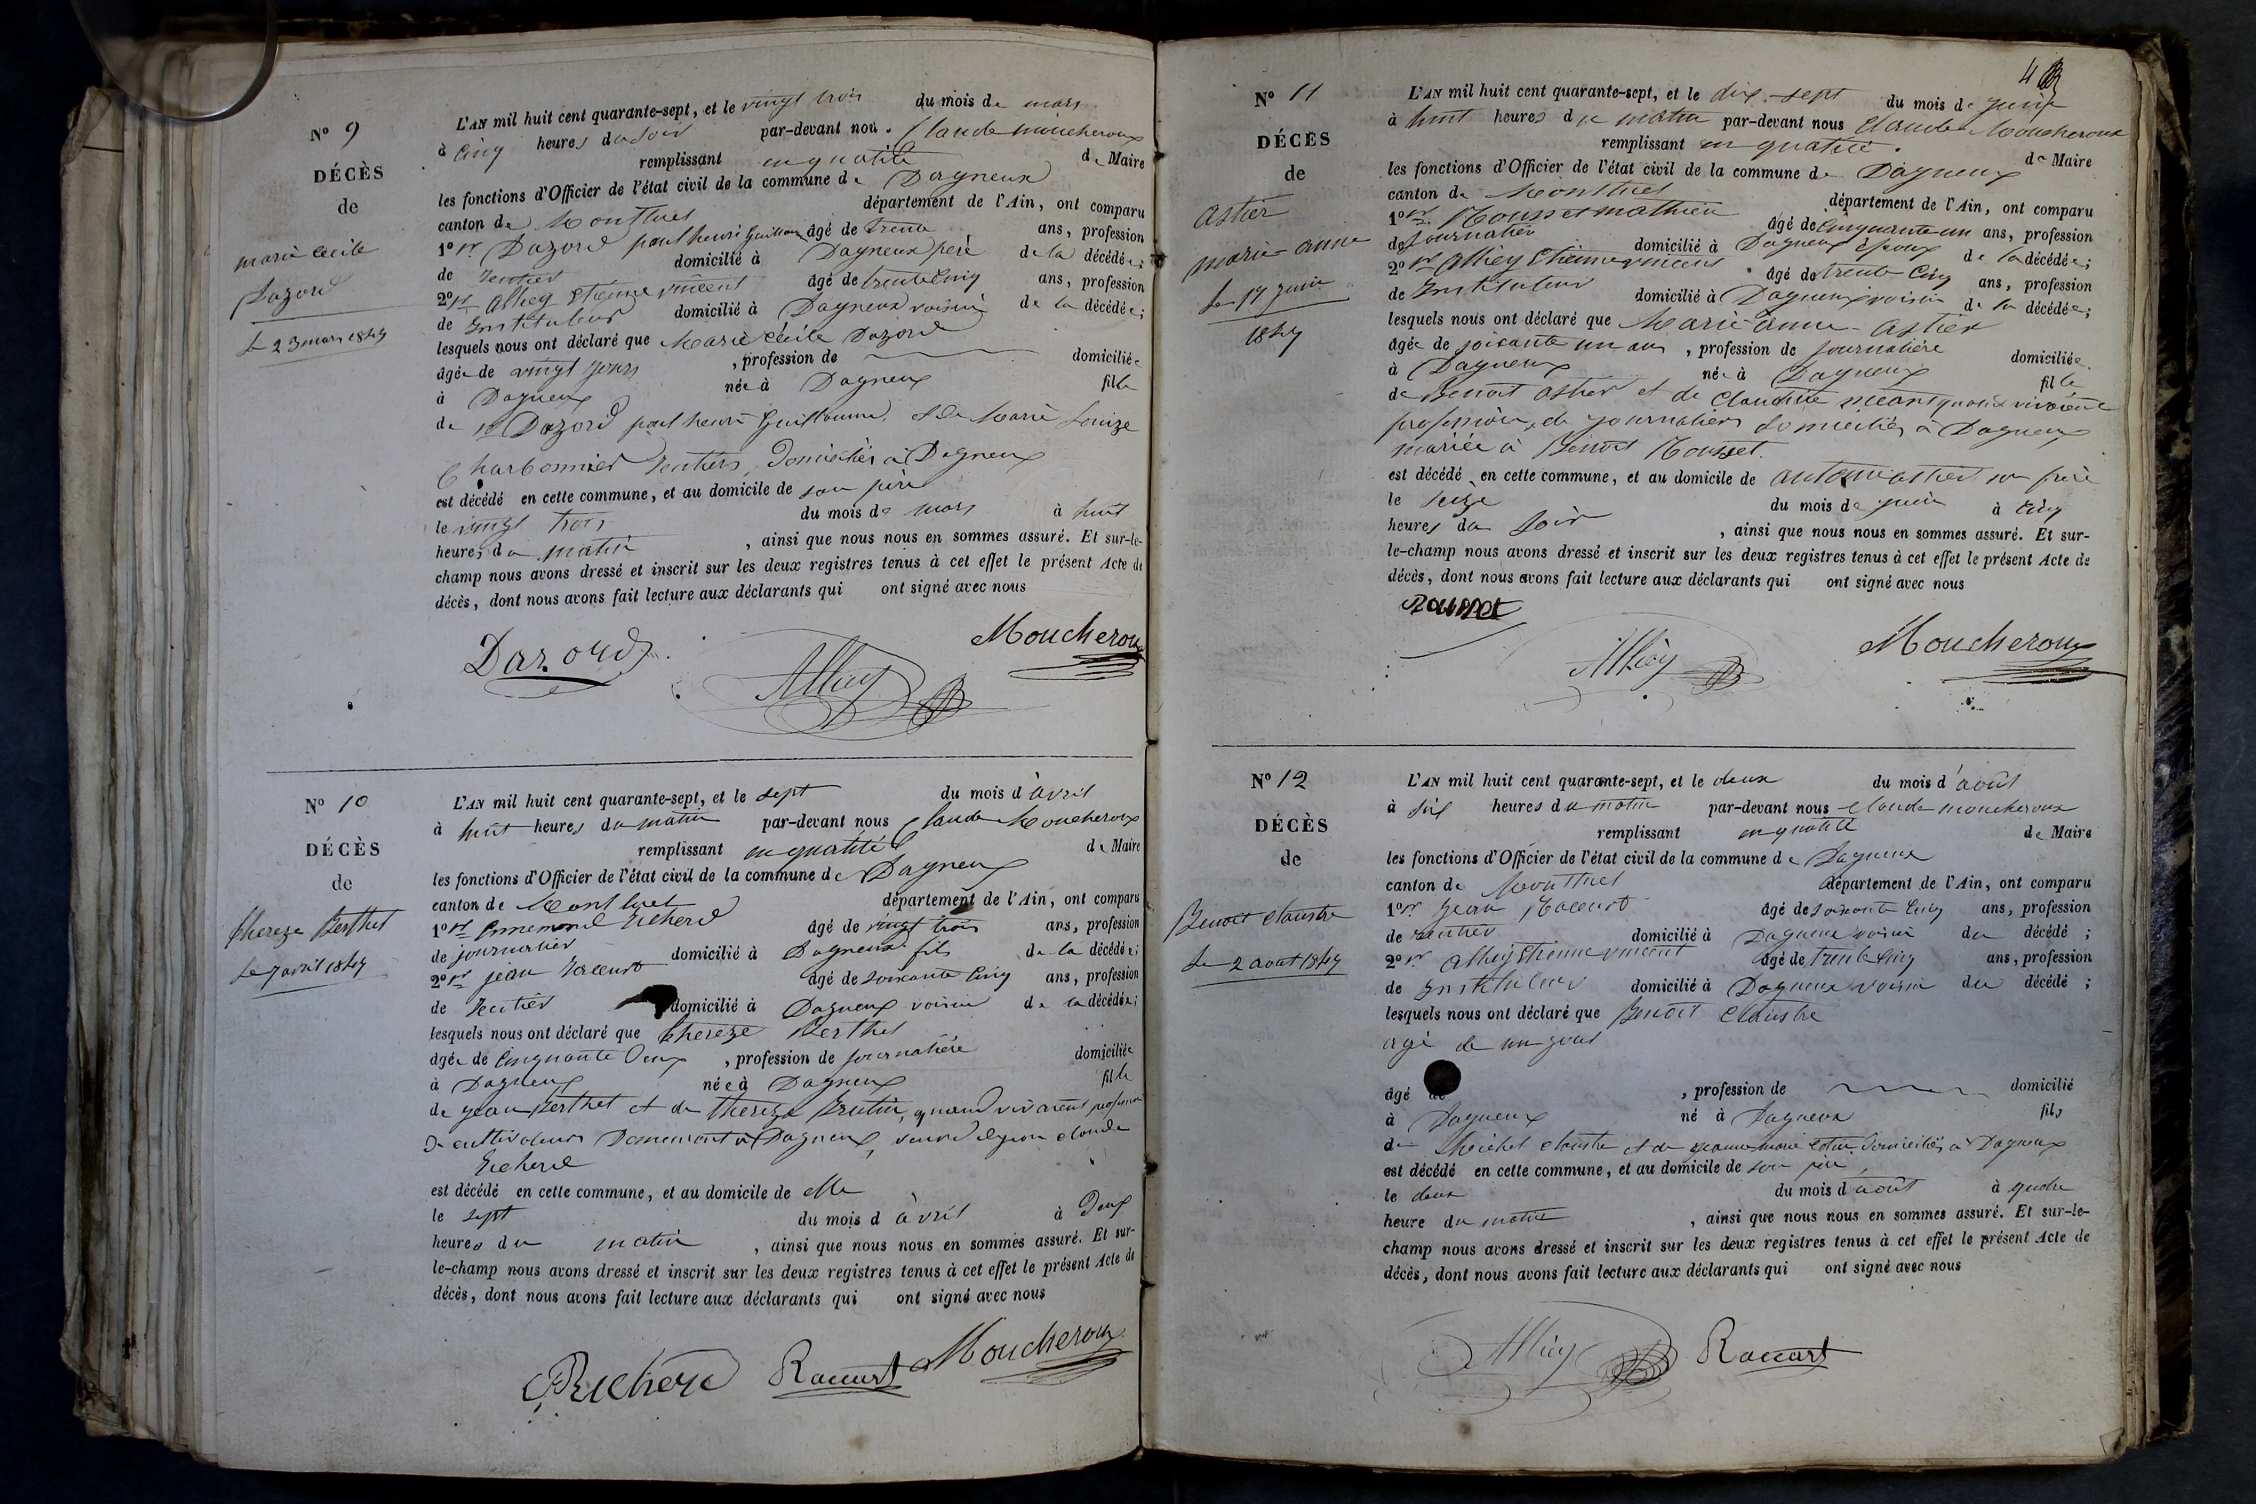 N° 9
DÉCÈS
de
marie Cecile
Dazord
Le 23 mars 1847
L'AN mil huit cent quarante-sept, et le vingt trois du mois de mars
à Cinq heures du soir par-devant nou. Claude moucheroux
remplissant en qualité de Maire
les fonctions d'Officier de l'état civil de la commune de Dagneux
canton de Montluel département de l'Ain, ont comparu
1° sr Dazord paul henri Guillaume âgé de trente ans, profession
de Rentier domicilié à Dagneux père de la décédée;
2° sr Alhey Etienne vincent âgé de trente Cinq ans, profession
de Instituteur domicilié à Dagneux voisin de la décédée;
lesquels nous ont déclaré que Marie Cécile Dazord
âgée de vingt jours , profession de domiciliée
à Dagneux née à Dagneux fille
de sr Dazord paul henri Guillaume et de Marie Louize
Charbonnier Rentiers, Domiciliés à Dagneux
est décédé en cette commune, et au domicile de son père
le vingt trois du mois de mars à huit
heures du matin , ainsi que nous nous en sommes assuré. Et sur-le-
champ nous avons dressé et inscrit sur les deux registres tenus à cet effet le présent Acte de
décès, dont nous avons fait lecture aux déclarants qui ont signé avec nous
Dazord Moucheroux
N° 10
DÉCÈS
de
thereze Berthet
Le 7 avril 1847
L'AN mil huit cent quarante-sept, et le sept du mois d'avril
à huit heures du matin par-devant nous Claude Moucheroux
remplissant en qualité de Maire
les fonctions d'Officier de l'état civil de la commune de Dagneux
canton de Montluel département de l'Ain, ont comparu
1° sr âgé de vingt trois ans, profession
de journalier domicilié à Dagneux fils de la décédée;
2° sr jean Racurt âgé de soixante Cinq ans, profession
de Rentier domicilié à Dagneux voisin de la décédée;
lesquels nous ont déclaré que thereze Berthet
âgée de Cinquante Deux , profession de journalière domiciliée
à Dagneux née à Dagneux fille
de jean Berthet et de thereze quand vivaient profession
de cultivateurs Demeurant à Dagneux, veuve de claude
Richerd
est décédé en cette commune, et au domicile de elle
le sept du mois d avril à Deux
heures du matin , ainsi que nous nous en sommes assuré. Et sur-
le-champ nous avons dressé et inscrit sur les deux registres tenus à cet effet le présent Acte de
décès, dont nous avons fait lecture aux déclarants qui ont signé avec nous
Richerd Racurt Moucheroux
N° 11
DÉCÈS
de
astier
marie-anne
Le 17 juin
1847
L'AN mil huit cent quarante-sept, et le dix-sept du mois de juin
à huit heures du matin par-devant nous Claude Moucheroux
remplissant en qualité de Maire
les fonctions d'Officier de l'état civil de la commune de Dagneux
canton de Montluel département de l'Ain, ont comparu
1° sr Rousset mathieu âgé de Cinquante un ans, profession
de Journalier domicilié à Dagneux époux de la décédée;
2° sr Alhey Etienne vincent âgé de trente Cinq ans, profession
de Instituteur domicilié à Dagneux voisin de la décédée;
lesquels nous ont déclaré que Marie-anne Astier
âgée de soixante un ans , profession de journalière domiciliée
à Dagneux née à Dagneux fille
de Benoit astier et de Claudine vivaient
profession de journaliers Domiciliés à Dagneux
mariée à Benoit Rousset.
est décédé en cette commune, et au domicile de antoine astier son frère
le seize du mois de juin à Cinq
heures du Soir , ainsi que nous nous en sommes assuré. Et sur-
le-champ nous avons dressé et inscrit sur les deux registres tenus à cet effet le présent Acte de
décès, dont nous avons fait lecture aux déclarants qui ont signé avec nous
Rousset
Alhey Moucheroux
N° 12
DÉCÈS
de
Benoit claustre
Le 2 aout 1847
L'AN mil huit cent quarante-sept, et le deux du mois d'août
à six heures du matin par-devant nous claude moucheroux
remplissant en qualité de Maire
les fonctions d'Officier de l'état civil de la commune de Dagneux
canton de Montluel département de l'Ain, ont comparu
1° sr Jean Racurt âgé de soixante Cinq ans, profession
de rentier domicilié à Dagneux voisin du décédé ;
2° sr Alhey Etienne vincent âgé de trente Cinq ans, profession
de Instituteur domicilié à Dagneux voisin du décédé ;
lesquels nous ont déclaré que Benoit Claustre
agé de un jour
âgé de , profession de domicilié
à Dagneux né à Dagneux fils
de Michel claustre et de jeanne marie Domiciliés à Dagneux
est décédé en cette commune, et au domicile de son père,
le deux du mois d'août à quatre
heure du matin , ainsi que nous nous en sommes assuré. Et sur-le-
champ nous avons dressé et inscrit sur les deux registres tenus à cet effet le présent Acte de
décès, dont nous avons fait lecture aux déclarants qui ont signé avec nous
Alhey Racurt